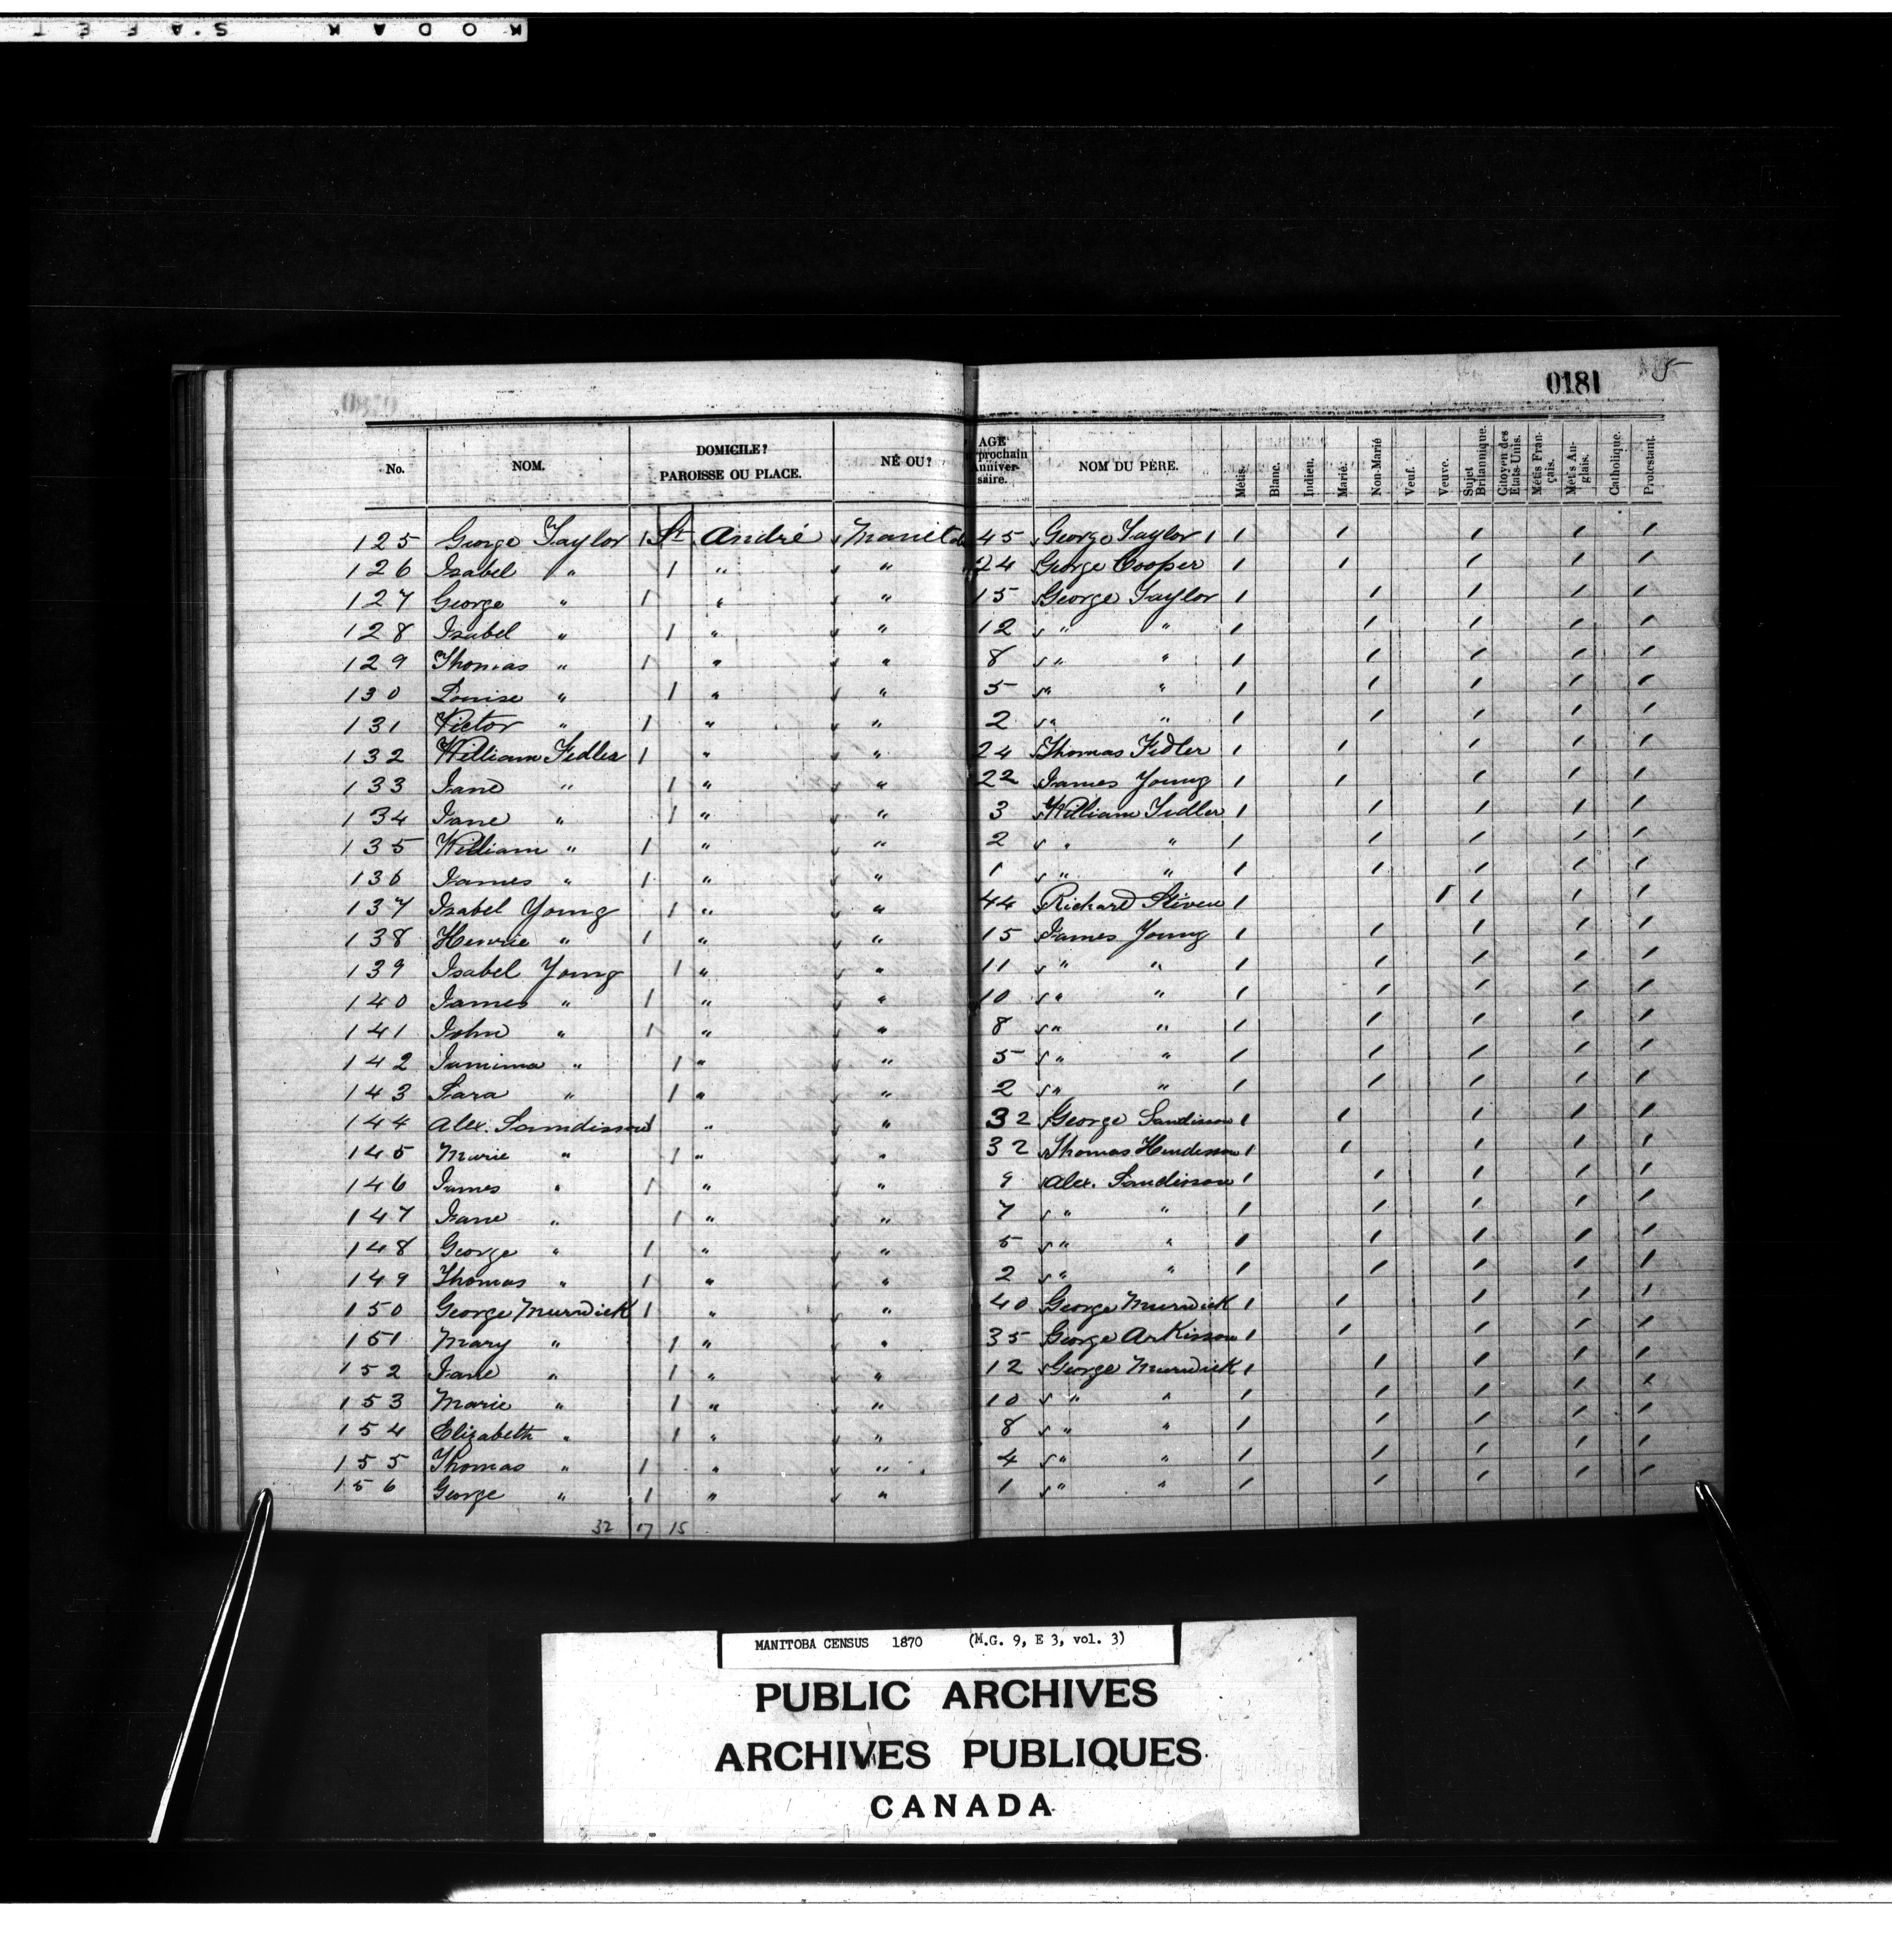 KODAK SAFET
0181 5
No. NOM. DOMICILE? PAROISSE OU PLACE. NÉ OU? AGE prochain Anniver- saire. NOM DU PÈRE. Métis. Blanc. Indien. Marié. Non-Marié Veuf. Veuve. Sujet Britannique. Citoyen des Etats-Unis. Métis Fran- çais. Met's An- glais. Catholique. Protestant.
125 George Taylor 1 St. André Manitoba 45 George Taylor 1 1 1 1 1 1
126 Isabel " 1 " " 24 George Cooper 1 1 1 1 1
127 George " 1 " " 15 George Taylor 1 1 1 1 1
128 Isabel " 1 " " 12 " " 1 1 1 1 1
129 Thomas " 1 " " 8 " " 1 1 1 1 1
130 Louise " 1 " " 5 " " 1 1 1 1 1
131 Victor " 1 " " 2 " " 1 1 1 1 1
132 William Fidler 1 " " 24 Thomas Fidler 1 1 1 1 1
133 Jane " 1 " " 22 James Young 1 1 1 1 1
134 Jane " 1 " " 3 William Fidler 1 1 1 1 1
135 William " 1 " " 2 " " 1 1 1 1 1
136 James " 1 " " 1 " " 1 1 1 1 1
137 Isabel Young 1 " " 44 Richard 1 1 1 1 1
138 Henrie " 1 " " 15 James Young 1 1 1 1 1
139 Isabel Young 1 " " 11 " " 1 1 1 1 1
140 James " 1 " " 10 " " 1 1 1 1 1
141 John " 1 " " 8 " " 1 1 1 1 1
142 Jamima " 1 " " 5 " " 1 1 1 1 1
143 Sara " 1 " " 2 " " 1 1 1 1 1
144 Alex. Sandisson 1 " " 32 George Sandisson 1 1 1 1 1
145 Marie " 1 " " 32 Thomas Henderson 1 1 1 1 1
146 James " 1 " " 9 Alex. Sandisson 1 1 1 1 1
147 Jane " 1 " " 7 " " 1 1 1 1 1
148 George " 1 " " 5 " " 1 1 1 1 1
149 Thomas " 1 " " 2 " " 1 1 1 1 1
150 George Murwick 1 " " 40 George Murwick 1 1 1 1 1
151 Mary " 1 " " 35 George Arkisson 1 1 1 1 1
152 Jane " 1 " " 12 George Murwick 1 1 1 1 1
153 Marie " 1 " " 10 " " 1 1 1 1 1
154 Elizabeth " 1 " " 8 " " 1 1 1 1 1
155 Thomas " 1 " " 4 " " 1 1 1 1 1
156 George " 1 " " 1 " " 1 1 1 1 1
32 17 15
MANITOBA CENSUS 1870 (M.G. 9, E 3, vol. 3)
PUBLIC ARCHIVES
ARCHIVES PUBLIQUES
CANADA